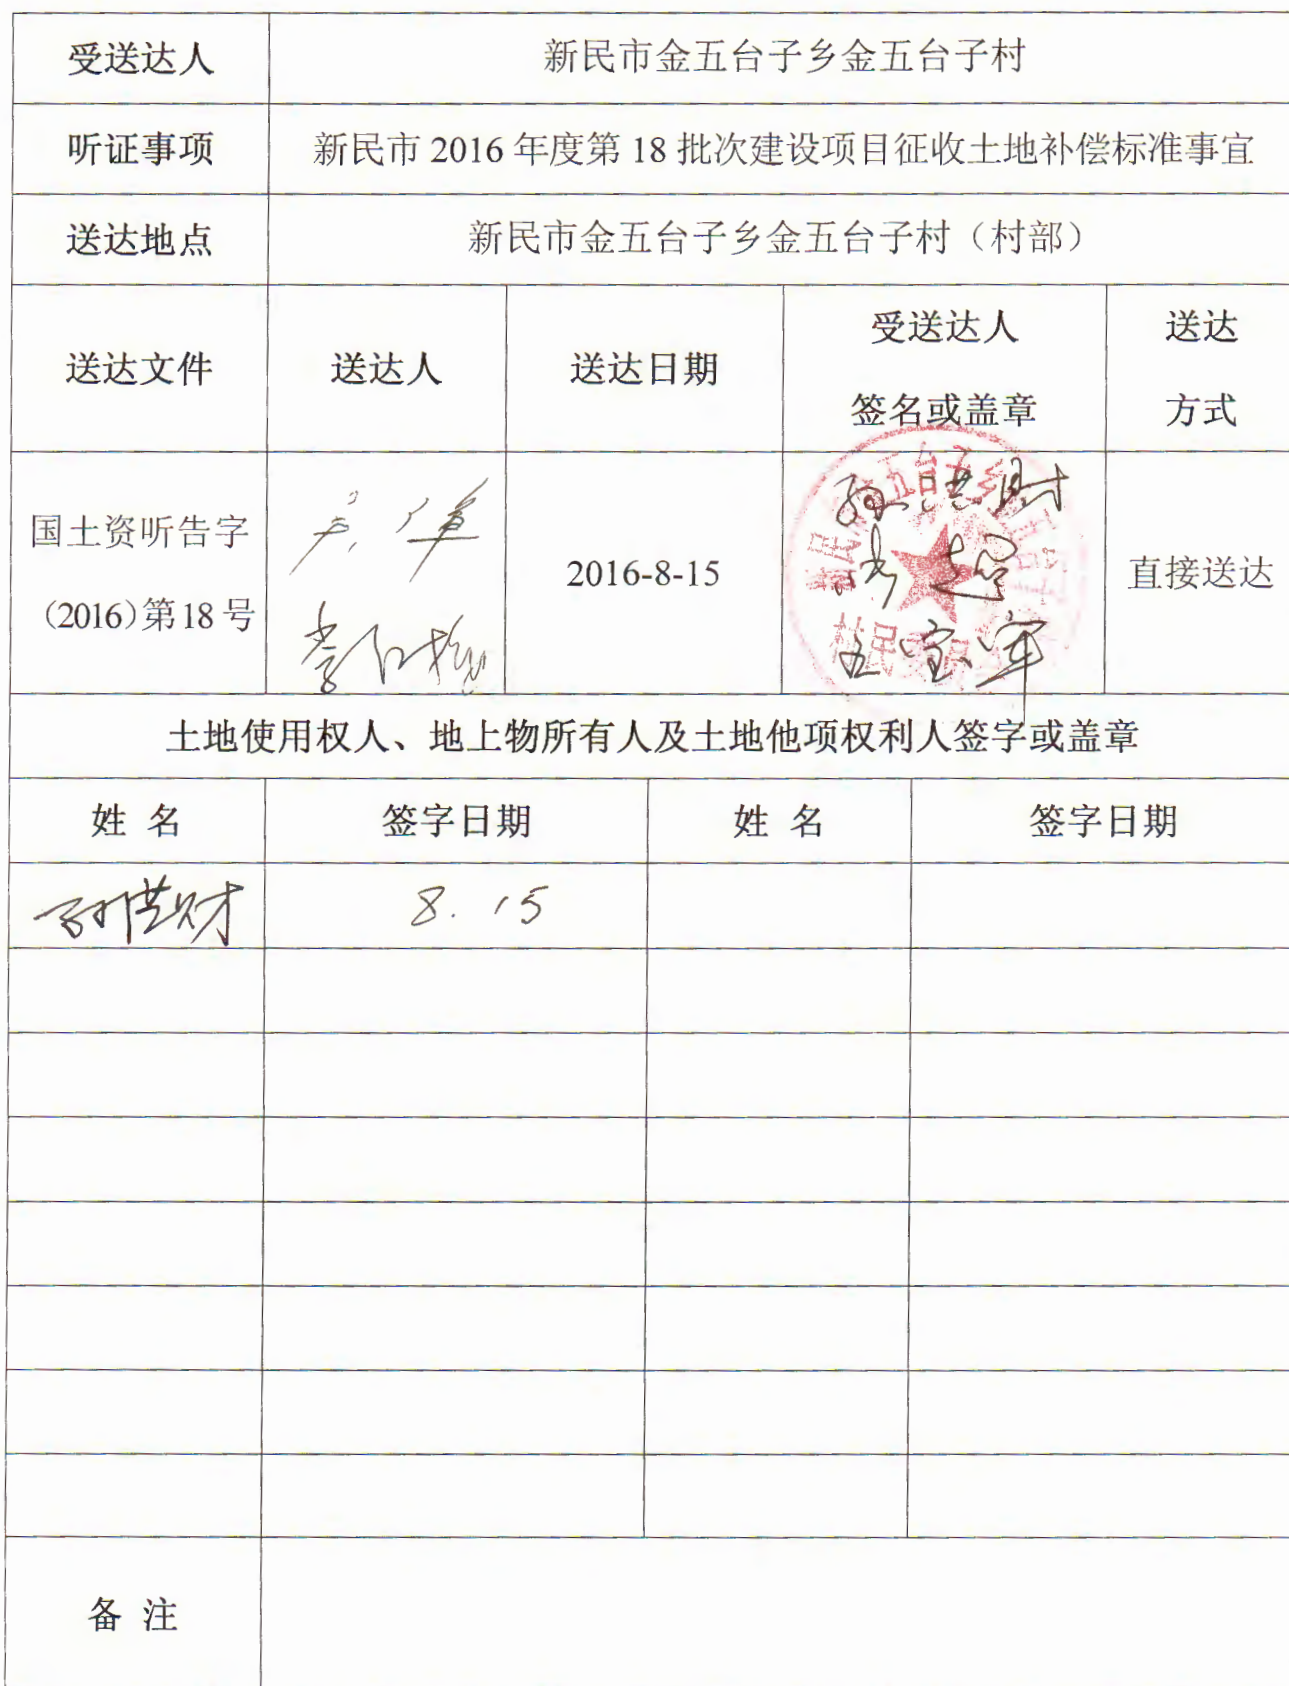 受送达人 新民市金五台子乡金五台子村
听证事项 新民市 2016 年度第 18 批次建设项目征收土地补偿标准事宜
送达地点 新民市金五台子乡金五台子村（村部）
送达文件 送达人 送达日期 受送达人 签名或盖章 送达 方式
国土资听告字
（2016）第18号
2016-8-15
王宝军
直接送达
土地使用权人、地上物所有人及土地他项权利人签字或盖章
姓 名 签字日期 姓 名 签字日期
孙洪财 8.15
备 注